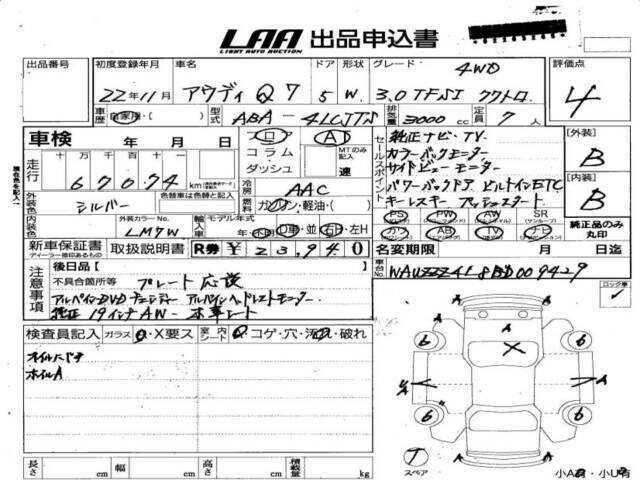 LAA 出品申込書
LIGHT AUTO AUCTION
出品番号 初度登録年月 車名 ドア 形状 グレード 4WD 評価点
22年11月 アウディ Q7 5 W 3.0 TFSI クワトロ 4
車歴 自家用・( ) 型式 ABA-4LCJTS 排気量 3000 cc 定員 7 人
車検 年 月 日
コラム
ダッシュ
MTのみ記入
速
セールスポイント
純正ナビ・TV
カラーバックモニター
サイドビューモニター
パワーバックドア ビルトインETC
キーレスキー プッシュスタート
[外装]
B
[内装]
B
走行 十 万 千 百 十
67074 km
冷房 AAC
外装色 シルバー 色替車は色替と記入
燃料 ガソリン・軽油・( )
PS PW AW SR
カワ AB TV ナビ
純正品のみ丸印
内装色 外装カラーNo. LM7W 輸入車 モデル年式 年 D車・並 右H・左H
新車保証書 取扱説明書 R券 ¥ 23,940
ディーラー捺印あるもの
名変期限 月 日迄
車台No. WAUZZZ4L8BD009429
注意事項
後日品[ ]
不具合箇所等 プレート応談
アルパインDVDチューナー アルパインヘッドレストモニター
純正19インチAW 本革シート
ロック車
検査員記入 ガラス A・X要ス 室内 シート コゲ・穴・汚れ・破れ
オイルニジミ
ホイルA
A A
6 6
X
A A
6 6
T
スペア
A A
長さ cm 幅 cm 高さ cm 積載量 kg
小A有・小U有